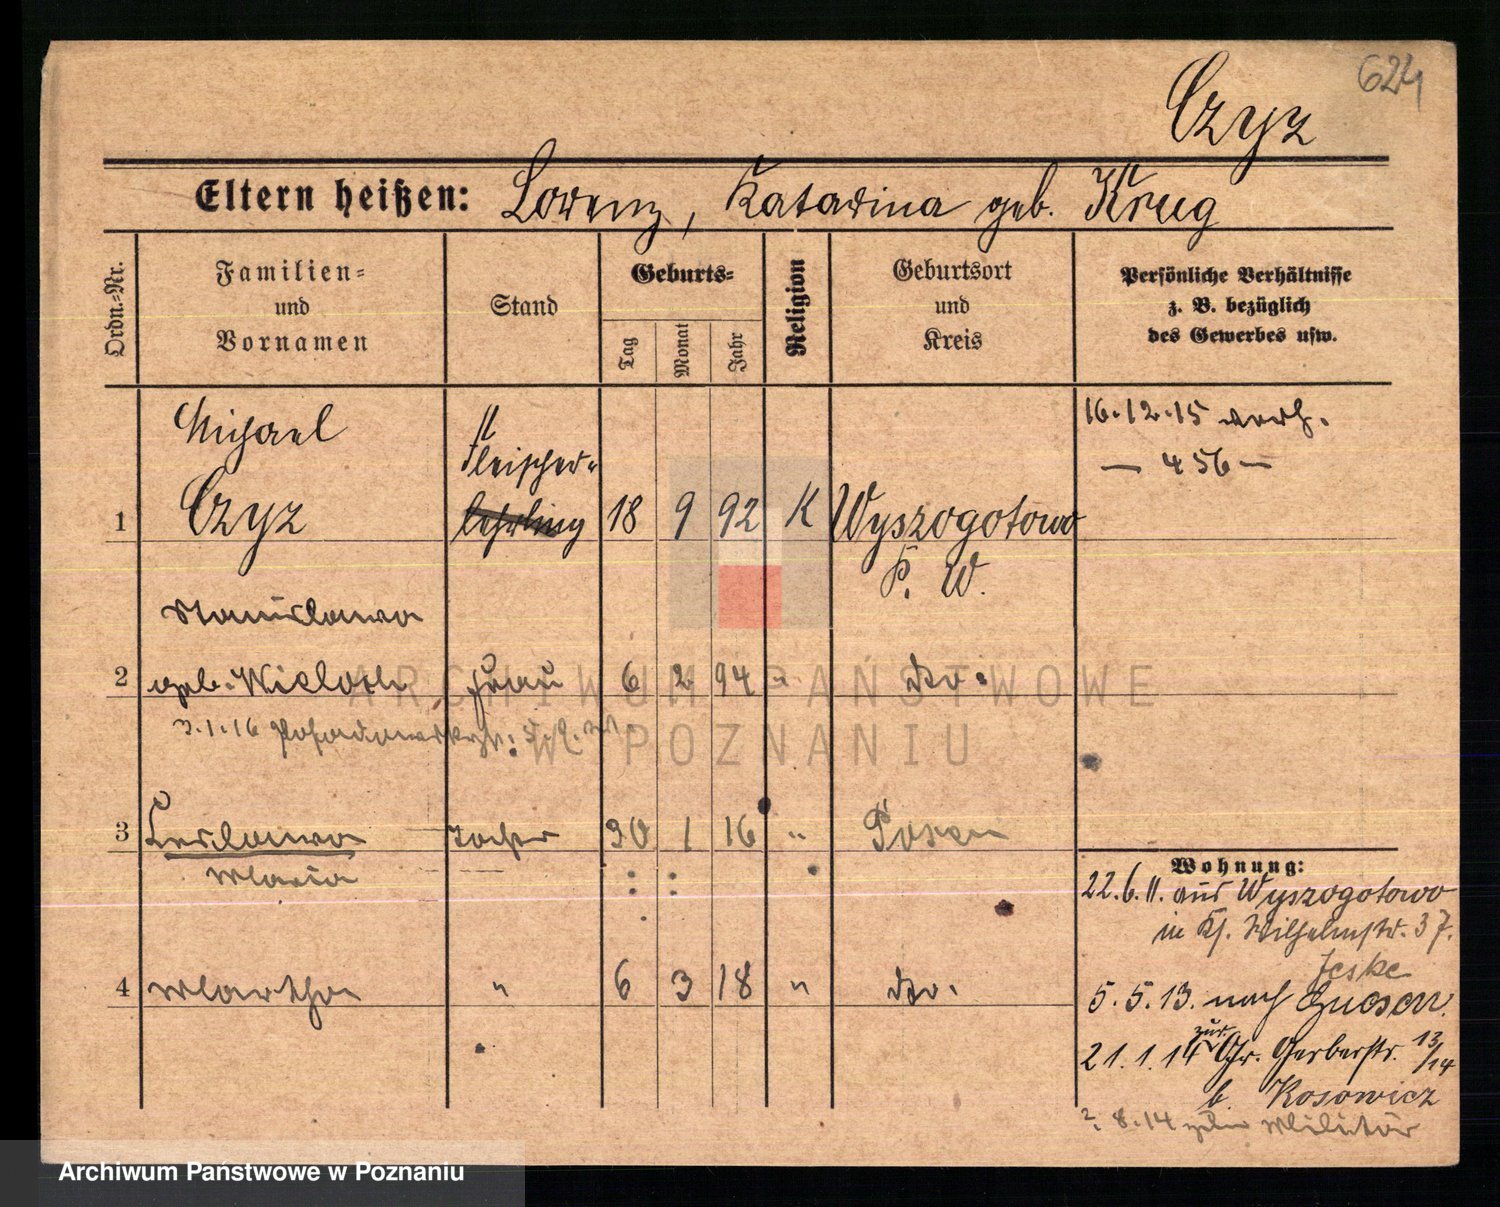 624
Czyz
Eltern heißen: Lorenz, Katarina geb. Krug
Ordn.-Nr.
Familien-
und
Vornamen
Stand
Geburts-
Tag
Monat
Jahr
Religion
Geburtsort
und
Kreis
Persönliche Verhältnisse
z. B. bezüglich
des Gewerbes usw.
16.12.15 verh.
— 456 —
Michael
Fleischer-
1 Czyz lehrling 18 9 92 K Wyszogotowo
P. W.
Stanislawa
2 geb. Frau 6 2 94 " do.
3.1.16
3 Tochter 30 1 16 " Posen
Maria
4 Martha " 6 3 18 " do.
Wohnung:
22.6.11. aus Wyszogotowo
in Kl. Wilhelmstr. 37.
Jeske
5.5.13. nach Gnesen.
21.1.14 zur. Gr. Gerberstr. 13/14
b. Kosowicz
2.8.14 zum Militär
ARCHIWUM PAŃSTWOWE
W POZNANIU
Archiwum Państwowe w Poznaniu